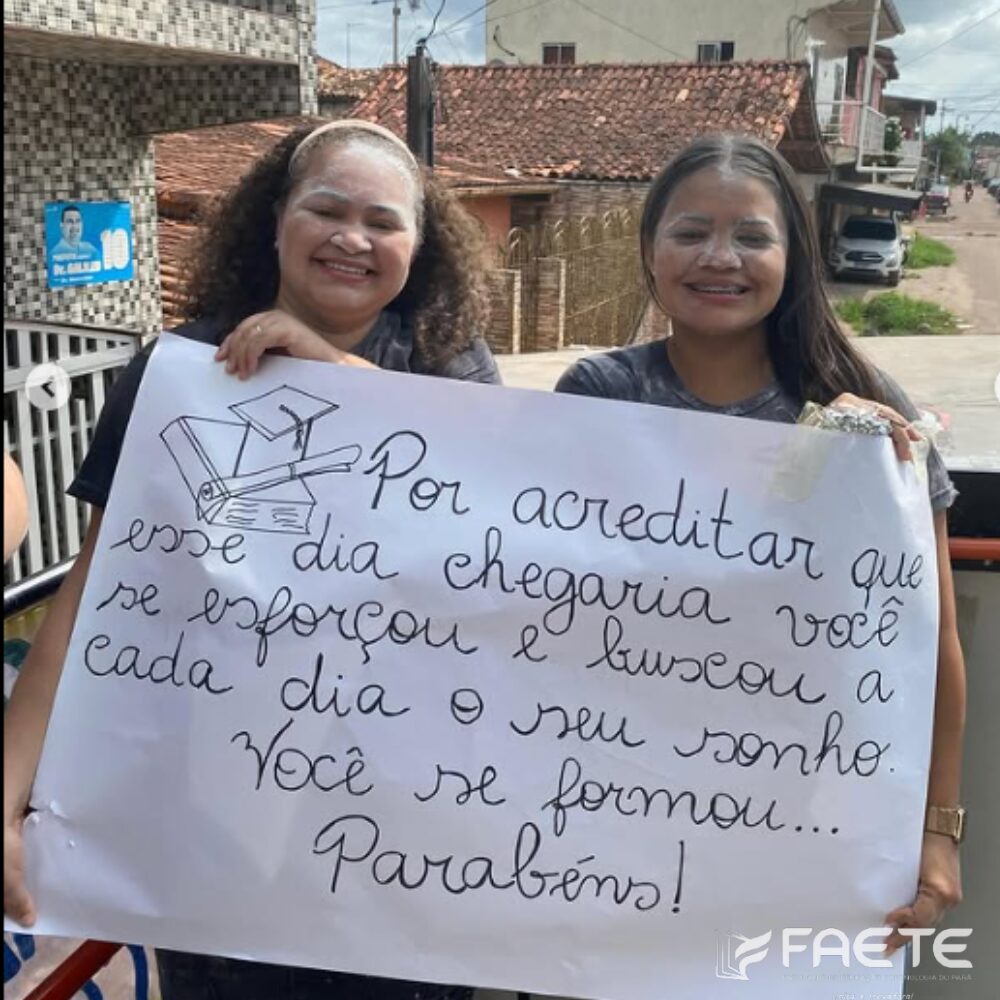 Dr. GALILEU
10
Por acreditar que
esse dia chegaria você
se esforçou e buscou a
cada dia o seu sonho.
Você se formou...
Parabéns!
FAETE